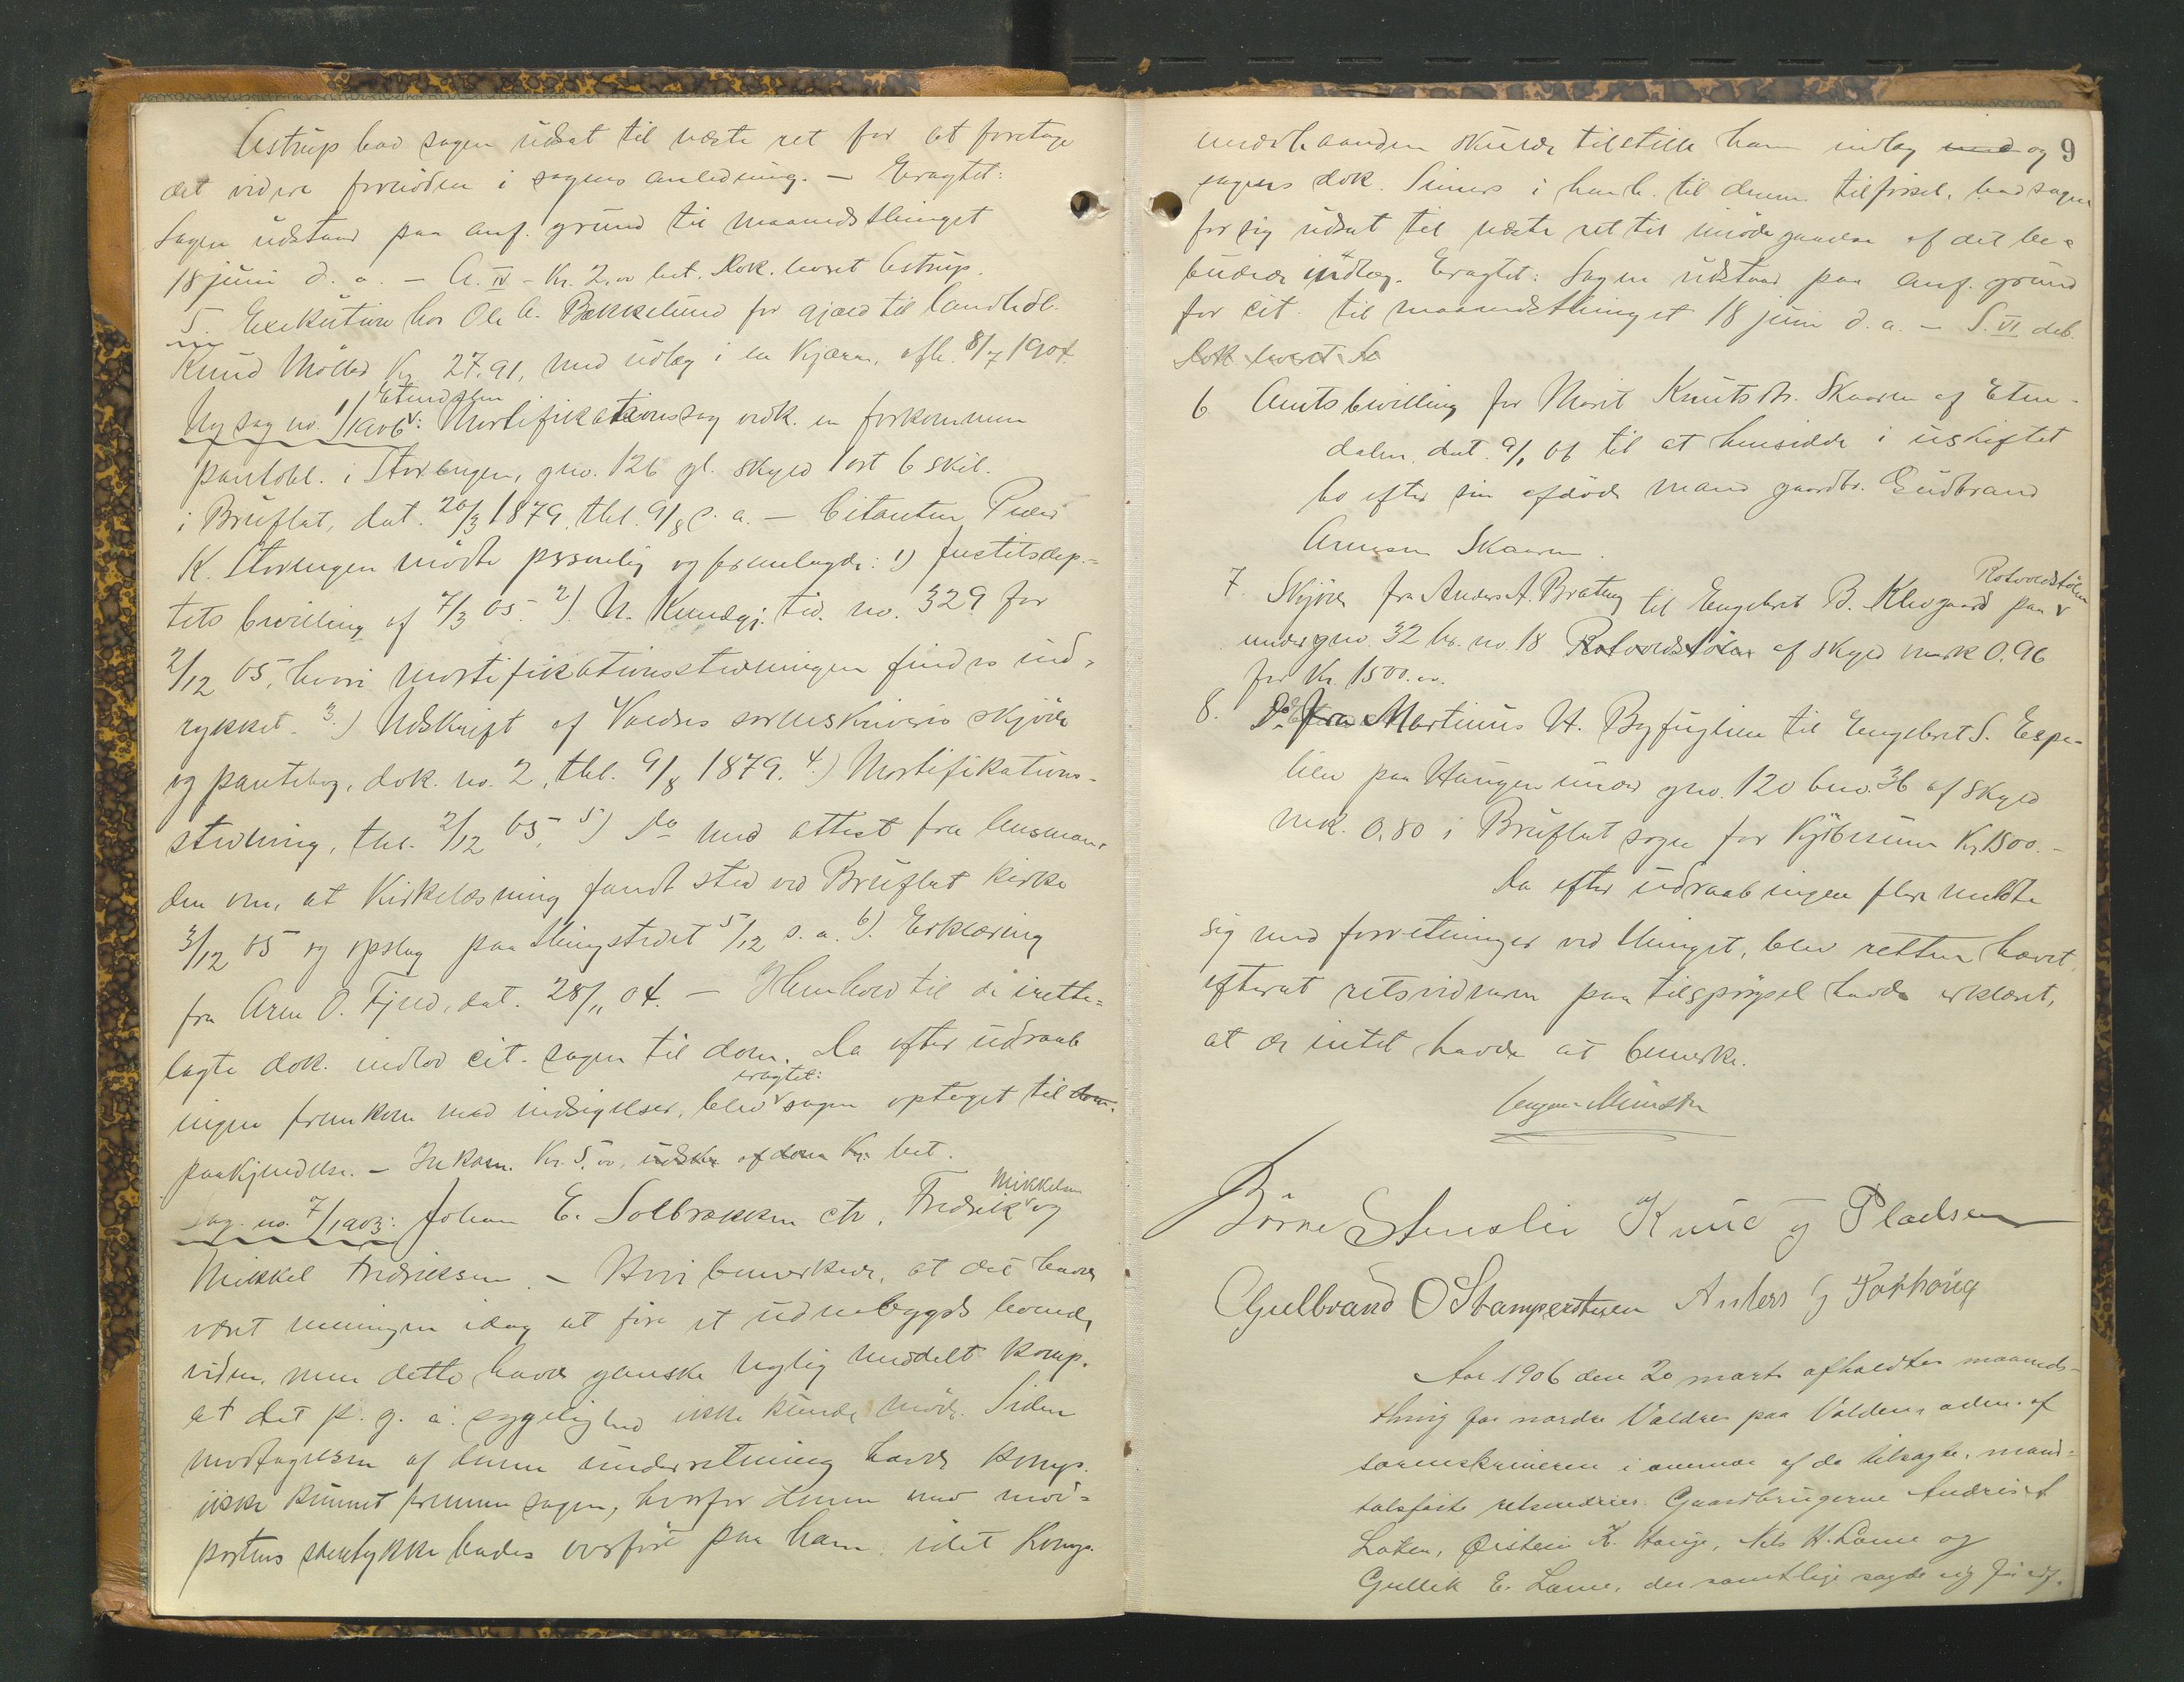 Astrup bad sagen udsat til næste ret for at foretage
det videre fornødne i sagens anledning. — Eragtet:
Sagen udstaar paa anf. grund til maanedsthinget
18 juni d. a. — A. IV – Kr. 2,00 bet. Dok. leveret Astrup.
5. Exekution hos Ole A. Bækkelund for gjæld til landhdl.
Knud Møller Kr 27.91, med udlæg i en Kjærre, afh. 8/7 1904.
Etnedalen
Ny sag no. 1/1906: Mortifikationssag vedk. en forkommen
pantobl. i Storengen, gno. 126 gl. skyld 1 ort 6 skil.
i Bruflat, dat. 20/3 1879, thl. 9/8 s. a. — Citanten Peder
K. Storengen mødte personlig og fremlagde: 1) Justitsdep.-
tets bevilling af 7/3 05. 2) N. Kundgj. tid. no. 329 for
2/12 05, hvori mortifikationsstevningen findes ind-
rykket. 3.) Udskrift af Valdres sorenskriveris skjøde
og pantebog, dok. no. 2, thl. 9/8 1879. 4.) Mortifikations-
stevning, thl. 2/12 05, 5) Do med attest fra lensman-
den om, at Kirkelæsning fandt sted ved Bruflat kirke
3/12 05 og opslag paa thingstedet 5/12 s. a. 6). Erklæring
fra Arne O. Fjeld, dat. 28/11 04. — I Henhold til de irette-
lagte dok. indlod cit. sagen til dom. Da efter udraab
eragtet:
ingen fremkom med indsigelser, blev sagen optaget til dom.
paakjendelse. — Inkam. Kr. 5,00, udskr. af dom Kr. bet.
Mikkelsen
Sag no. 7/1903: Johan E. Solbrækken ctr. Fredrik og
Mikkel Fredriksen. — Hvori bemerkede, at det havde
været meningen idag at føre et udenbygds boende
vidne, men dette havde ganske nylig meddelt komp.
at det p. g. a. sygelighed ikke kunde møde. Siden
modtagelsen af denne underretning havde komp.
ikke kunnet fremme sagen, hvorfor denne med mod-
partens samtykke bades overført paa ham, idet Komp.
9
underhaanden skulde tilstille ham indlæg med og
sagens dok. Simers i henh. til denne tilførsel, bad sagen
for sig udsat til næste ret til imødegaaelse af det be-
budede indlæg. Eragtet: Sagen udstaar paa anf. grund
for cit. til maanedsthinget 18 juni d. a. — S. VI deb.
Dok. leveret
6 Amtsbevilling for Marit Knutsdtr. Skaaren af Etne-
dalen, dat. 9/1 06 til at hensidde i uskiftet
bo efter sin afdøde mand gaardbr. Gudbrand
Arnesen Skaaren.
Rotvoldstølen
7. Skjøde fra Anders A. Brateng til Engebret B. Klevgaard paa
under gno. 32 br. no. 18 Rotvoldstølen af skyld mark 0.96
for Kr. 1500.00.
8. Do fra Martinus H. Byfuglien til Engebret S. Espe-
lien paa Haugen under gno. 120 bno. 36 af skyld
mrk. 0,80 i Bruflat sogn for Kjøbesum Kr. 1500.-
Da efter udraab ingen flere meldte
sig med forretninger ved thinget, blev retten hævet,
efterat retsvidnerne paa tilspørgsel havde erklæret,
at de intet havde at bemerke.
Børne Stenslie Knut Pladsen
Gulbrand O Stamperstuen Anders G Tophoug
Aar 1906 den 20 marts afholdtes maaneds-
thing for nordre Valdres paa Volden, adm. af
sorenskriveren i overvær af de tilsagte, mand-
talsførte retsvidner: Gaardbrugerne Andris A
Løken, Øistein K. Hauge, Nils H. Lome og
Gullik E. Lome, der samtlige sagde sig